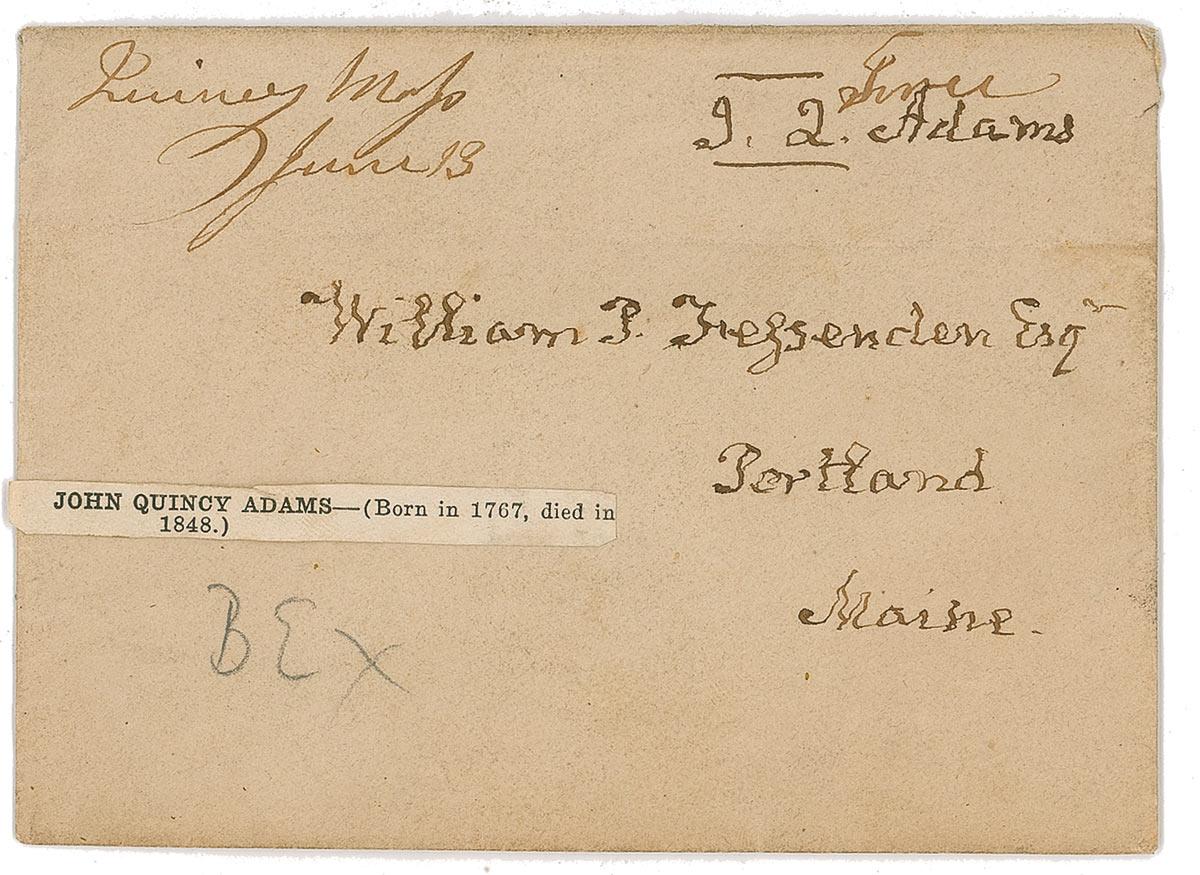 Quincy Mass
June 13
Free
J. Q. Adams
William P. Fessenden Esqr
Portland
Maine.
JOHN QUINCY ADAMS—(Born in 1767, died in
1848.)
BEX